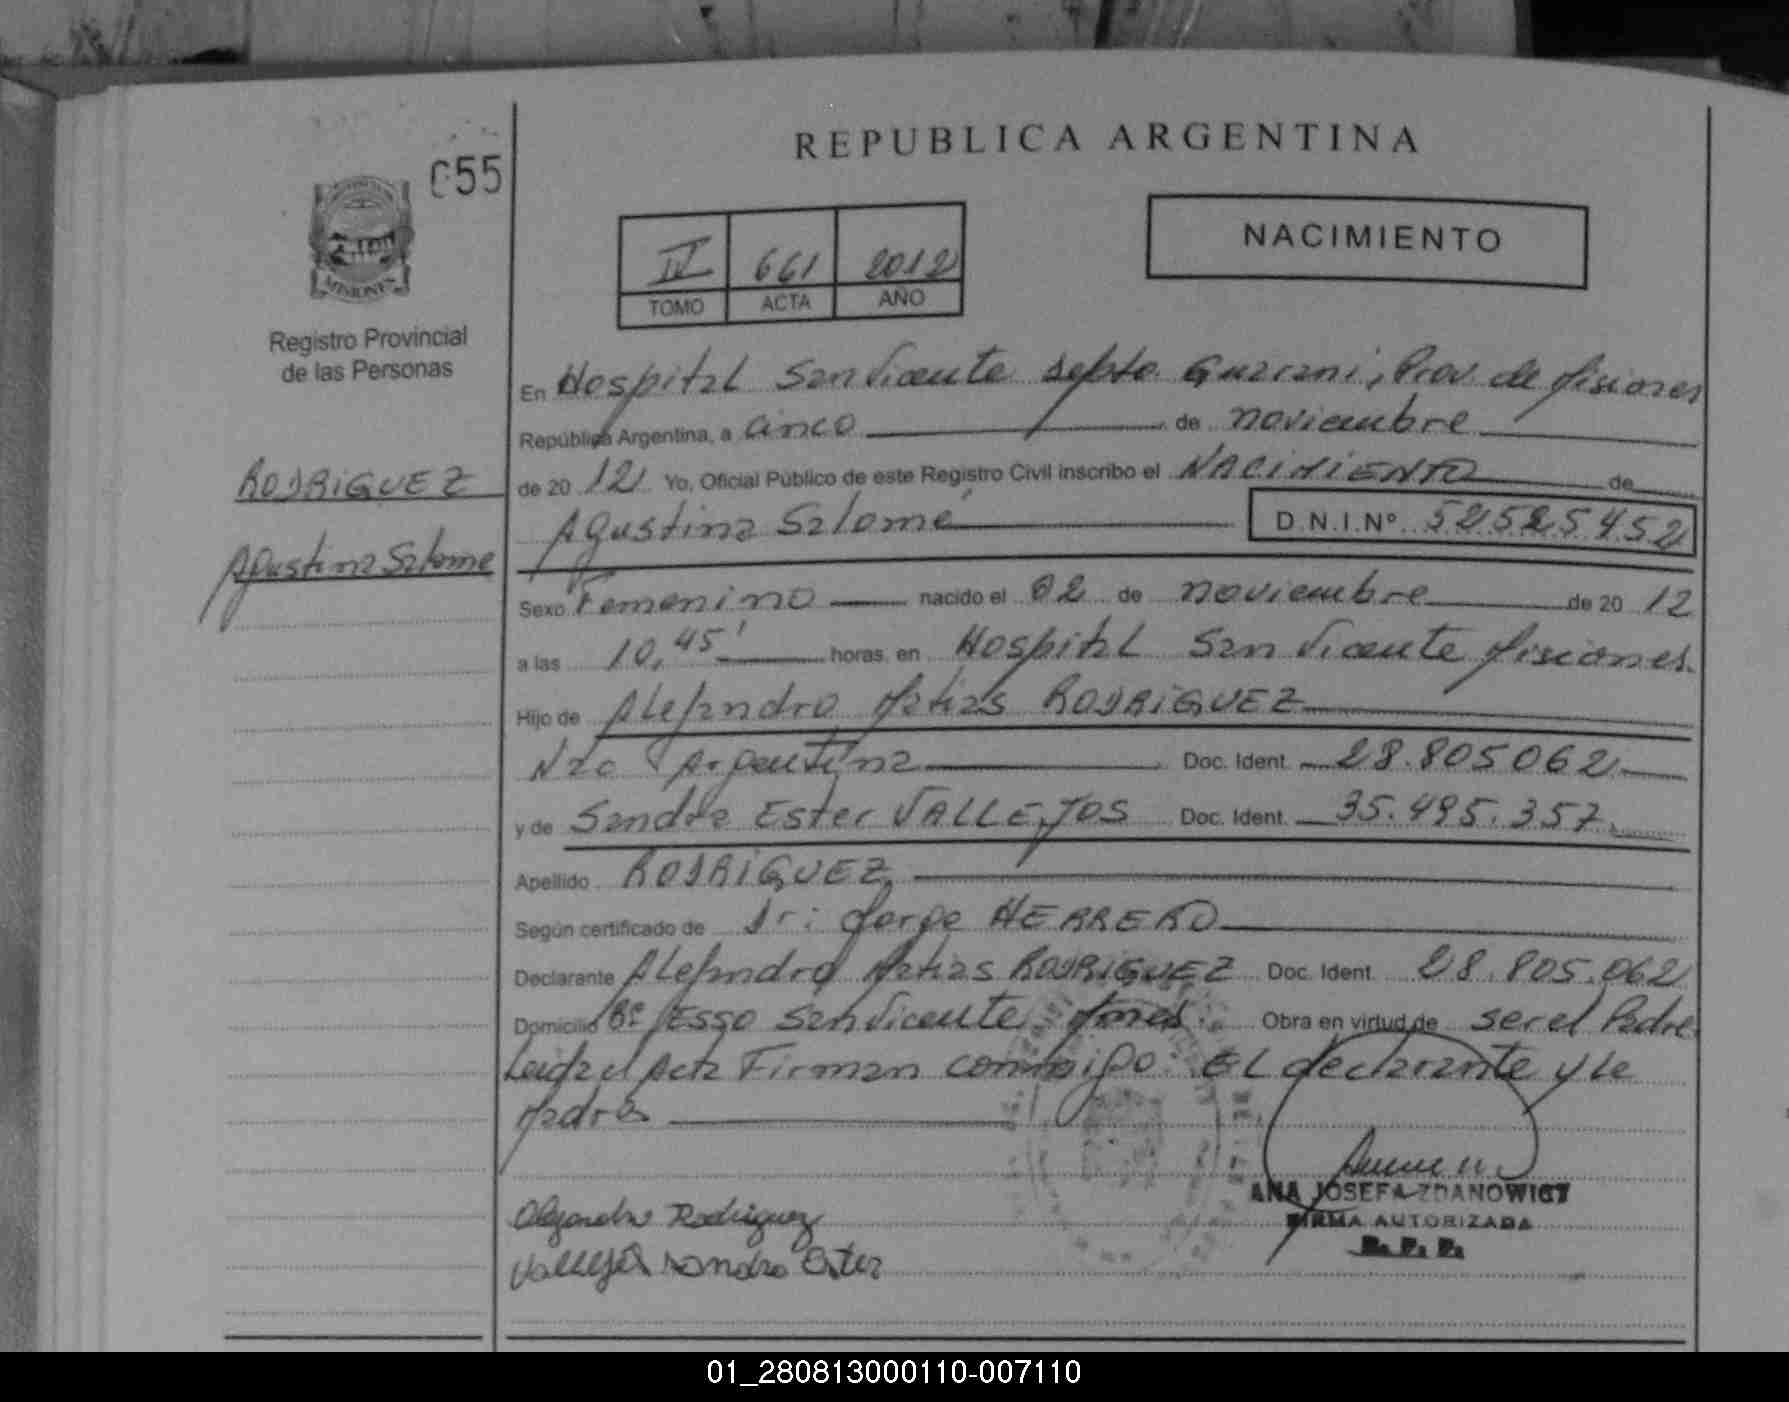 REPUBLICA ARGENTINA
055
NACIMIENTO
IV 661 2012
TOMO ACTA AÑO
MISIONES
Registro Provincial
de las Personas
RODRIGUEZ
Agustina Salome
En Hospital San Vicente Depto. Guarani, Prov. de Misiones
República Argentina, a cinco de noviembre
de 2012 Yo, Oficial Público de este Registro Civil inscribo el NACIMIENTO de
Agustina Salomé D.N.I.Nº 52525452
Sexo Femenino nacido el 02 de noviembre de 20 12
a las 10,45' horas, en Hospital San Vicente Misiones.
Hijo de Alejandro Matias RODRIGUEZ
Nac. Argentina Doc. Ident. 28.805062
y de Sandra Ester VALLEJOS Doc. Ident. 35.495.357
Apellido RODRIGUEZ
Según certificado de Dr: Jorge HERRERO
Declarante Alejandro Matias RODRIGUEZ Doc. Ident. 28.805.062
Domicilio Bº Esso San Vicente Mnes. Obra en virtud de ser el Padre
Leida el Acta Firman conmigo El declarante y la
Madre
Alejandro Rodriguez
Vallejos Sandra Ester
ANA JOSEFA ZDANOWICZ
FIRMA AUTORIZADA
R. P. P.
01_280813000110-007110